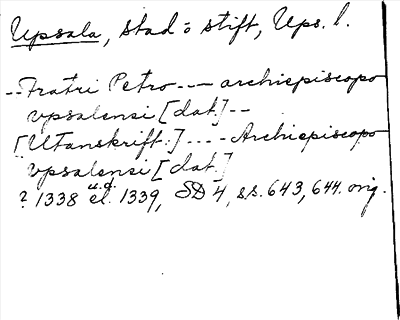 Upsala, stad o stift, Ups. l.
-- Fratri Petro --- archiepiscopo
vpsalensi [dat.] --
[Utanskrift:] ---- Archiepiscopo
vpsalensi [dat.]
u.å.
? 1338 el. 1339, SD 4, ss. 643, 644. orig.